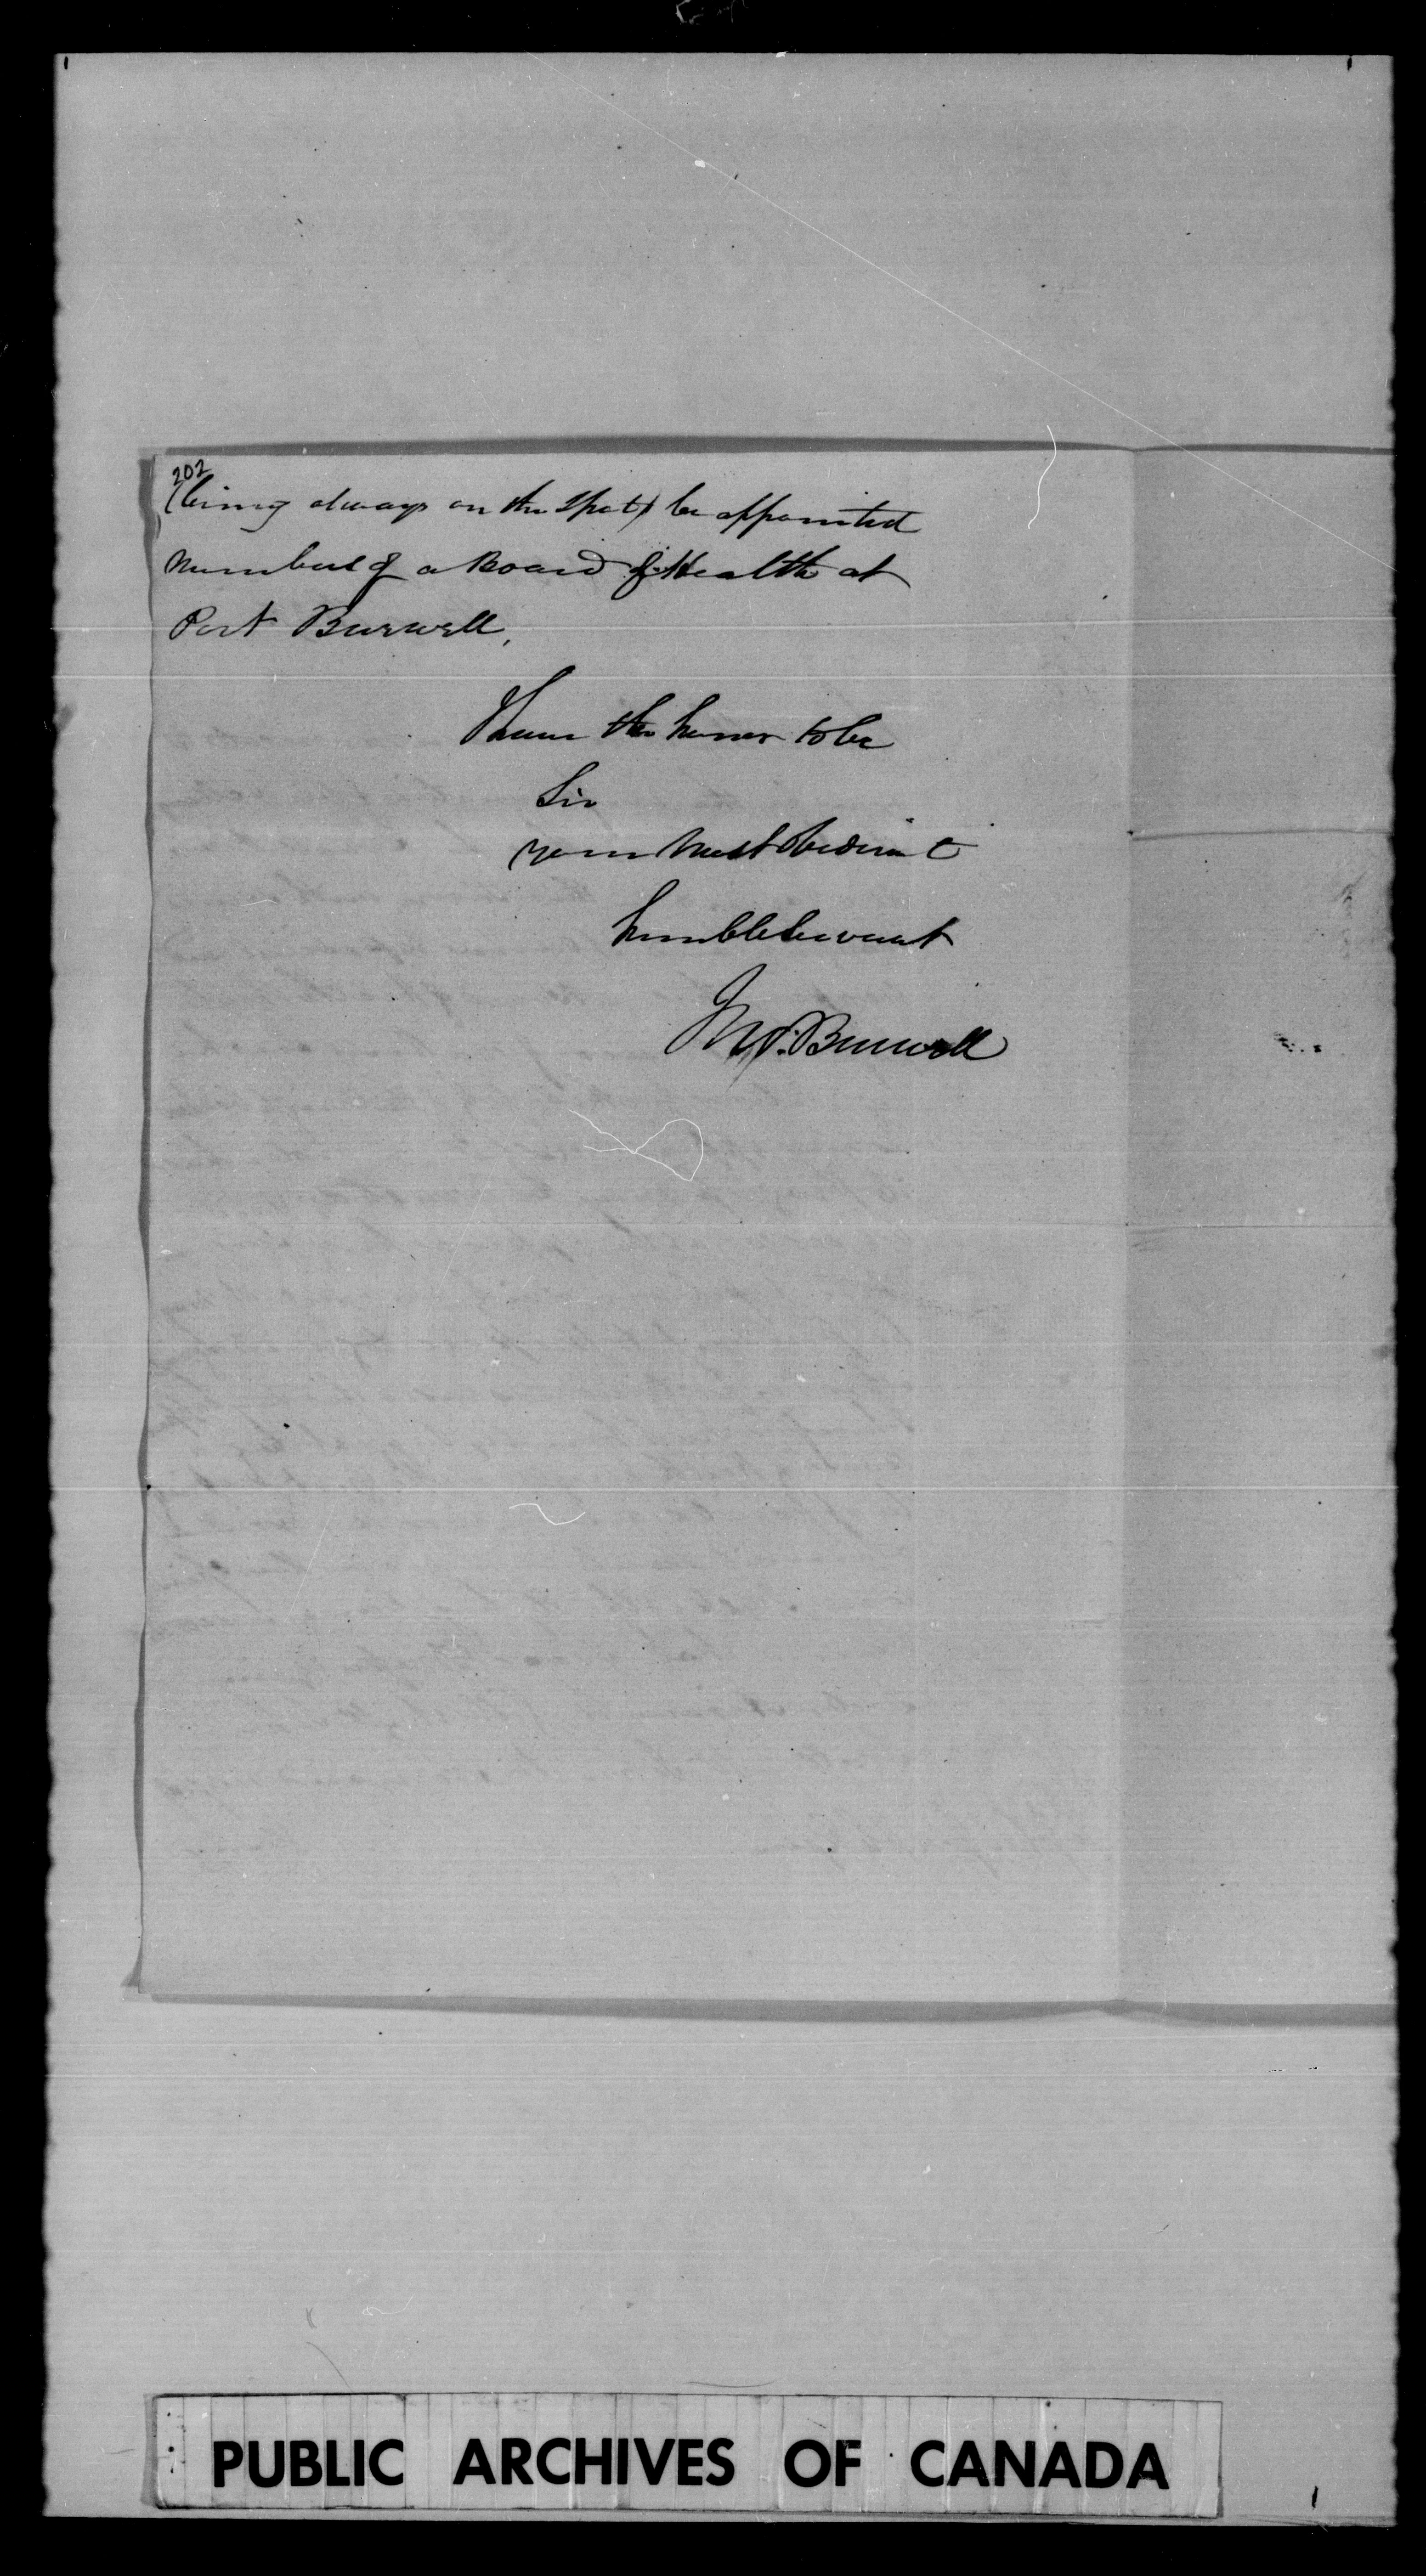 202
(being always on the spot) be appointed
members of a Board of Health at
Port Burwell.
I have the honor to be
Sir
your most obedient
humble servant
M. Burwell
PUBLIC ARCHIVES OF CANADA